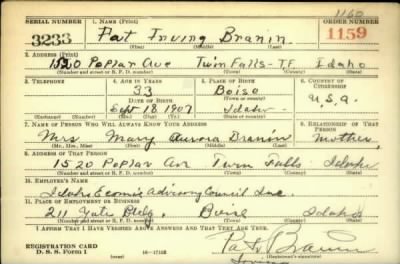 1160
SERIAL NUMBER 1. NAME (Print) ORDER NUMBER
3233 Pat Irving Branin 1159
(First) (Middle) (Last)
2. ADDRESS (Print)
1520 Poplar Ave Twin Falls - T.F. Idaho
(Number and street or R. F. D. number) (Town) (County) (State)
3. TELEPHONE 4. AGE IN YEARS 5. PLACE OF BIRTH 6. COUNTRY OF CITIZENSHIP
33 Boise
DATE OF BIRTH (Town or county) U.S.A.
Sept 18 1907 Idaho
(Exchange) (Number) (Mo.) (Day) (Yr.) (State or country)
7. NAME OF PERSON WHO WILL ALWAYS KNOW YOUR ADDRESS 8. RELATIONSHIP OF THAT PERSON
Mrs Mary Aurora Branin Mother
(Mr., Mrs., Miss) (First) (Middle) (Last)
9. ADDRESS OF THAT PERSON
1520 Poplar Ave Twin Falls Idaho
(Number and street or R. F. D. number) (Town) (County) (State)
10. EMPLOYER'S NAME
Idaho Economic Advisory Council Inc.
11. PLACE OF EMPLOYMENT OR BUSINESS
211 Yates Bldg. Boise Idaho
(Number and street or R. F. D. number) (Town) (County) (State)
I AFFIRM THAT I HAVE VERIFIED ABOVE ANSWERS AND THAT THEY ARE TRUE.
REGISTRATION CARD
D. S. S. Form 1 (over) 16-17105 (Registrant's signature)
Pat Branin
Irving